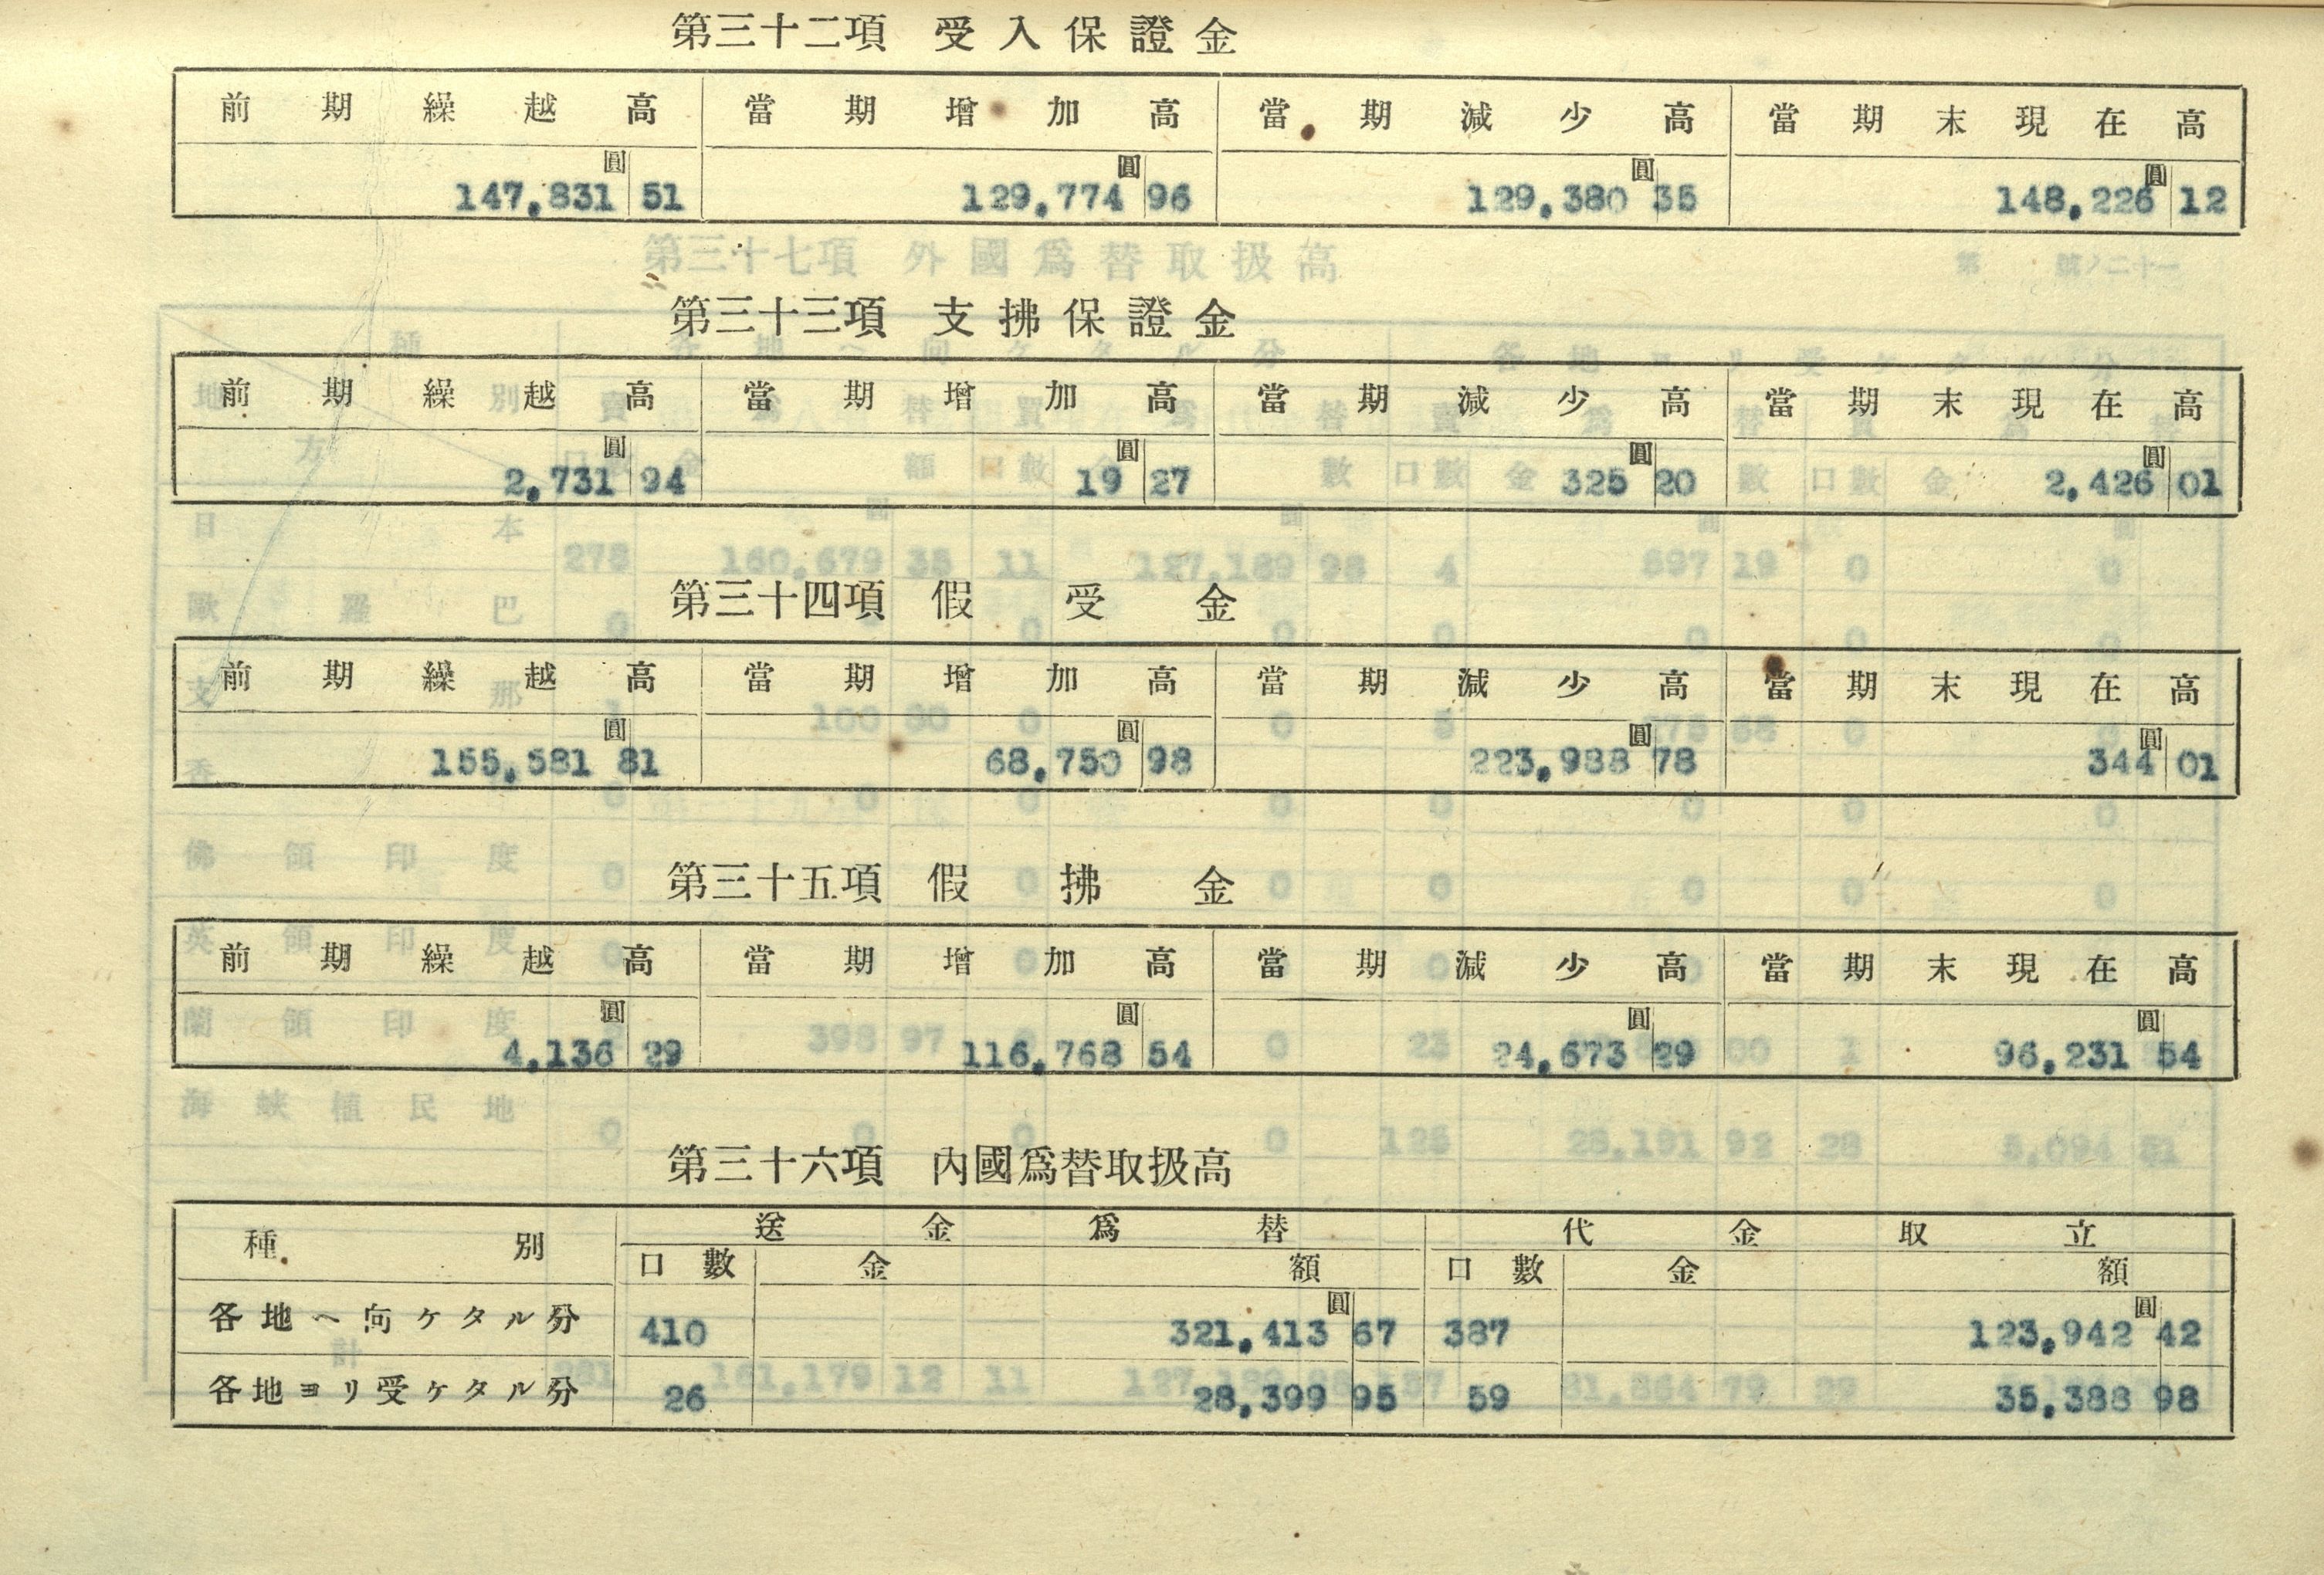 第三十二項 受入保證金
前期繰越高 當期增加高 當期減少高 當期末現在高
圓 圓 圓 圓
147,831 51 129,774 96 129,380 35 148,226 12
第三十七項 外國爲替取扱高
第三十三項 支拂保證金
前期繰越高 當期增加高 當期減少高 當期末現在高
圓 圓 圓 圓
2,731 94 19 27 325 20 2,426 01
第三十四項 假受金
前期繰越高 當期增加高 當期減少高 當期末現在高
圓 圓 圓 圓
155,581 81 68,750 98 223,988 78 344 01
第三十五項 假拂金
前期繰越高 當期增加高 當期減少高 當期末現在高
圓 圓 圓 圓
4,136 29 116,768 54 24,673 29 96,231 54
第三十六項 內國爲替取扱高
種別 送金爲替 代金取立
口數 金額 口數 金額
圓 圓
各地ヘ向ケタル分 410 321,413 67 387 123,942 42
各地ヨリ受ケタル分 26 28,399 95 59 35,388 98